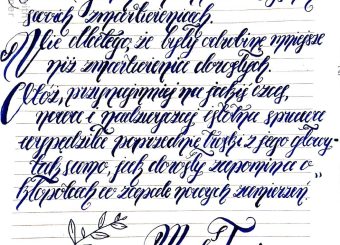 swoich zmartwieniach.
Nie dlatego, że były odrobinę mniejsze
niż zmartwienie dorosłych.
Otóż, przynajmniej na jakiś czas,
nowa i nadzwyczaj istotna sprawa
wypędziła poprzednie troski z jego głowy-
tak samo, jak dorosły zapomina o
kłopotach w zapale nowych zamierzeń."